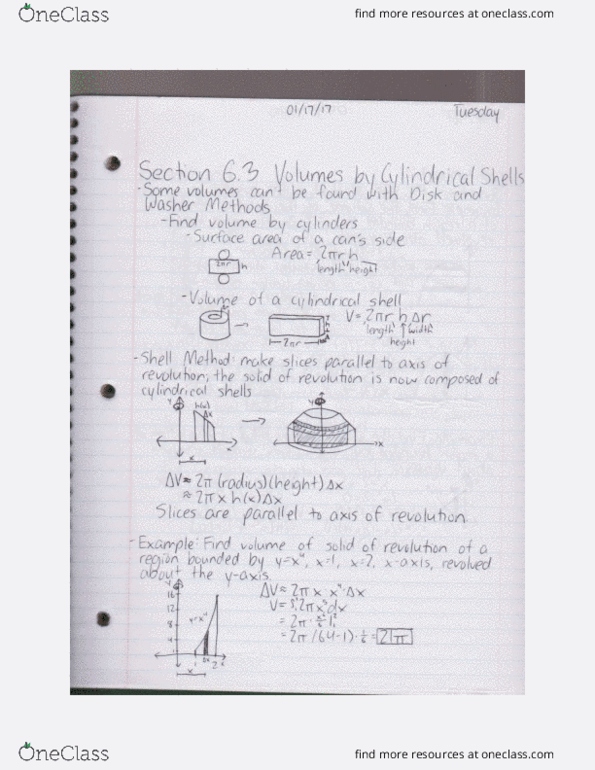 OneClass
find more resources at oneclass.com
01/17/17
Tuesday
Section 6.3 Volumes by Cylindrical Shells
- Some volumes can't be found with Disk and
Washer Methods
- Find volume by cylinders
- Surface area of a can's side
Area = 2πr h
length height
2πr h
- Volume of a cylindrical shell
V = 2πr h Δr
length ↑ width
height
2πr
- Shell Method: make slices parallel to axis of
revolution; the solid of revolution is now composed of
cylindrical shells
y h(x)
Δx
x
y
x
ΔV ≈ 2π (radius)(height) Δx
≈ 2π x h(x) Δx
Slices are parallel to axis of revolution
- Example: Find volume of solid of revolution of a
region bounded by y=x⁴, x=1, x=2, x-axis, revolved
about the y-axis.
ΔV ≈ 2π x x⁴ · Δx
V = ∫₁² 2πx⁵ dx
= 2π · x⁶/6 |₁²
= 2π (64-1) · 1/6 = 21π
y
16
12
8
4
y=x⁴
1 Δx 2
x
OneClass
find more resources at oneclass.com